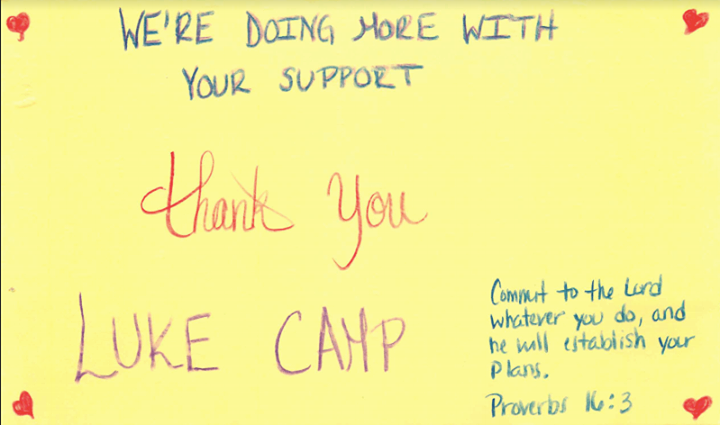 WE'RE DOING MORE WITH
YOUR SUPPORT
thank you
LUKE CAMP
Commit to the Lord
whatever you do, and
he will establish your
Plans.
Proverbs 16:3